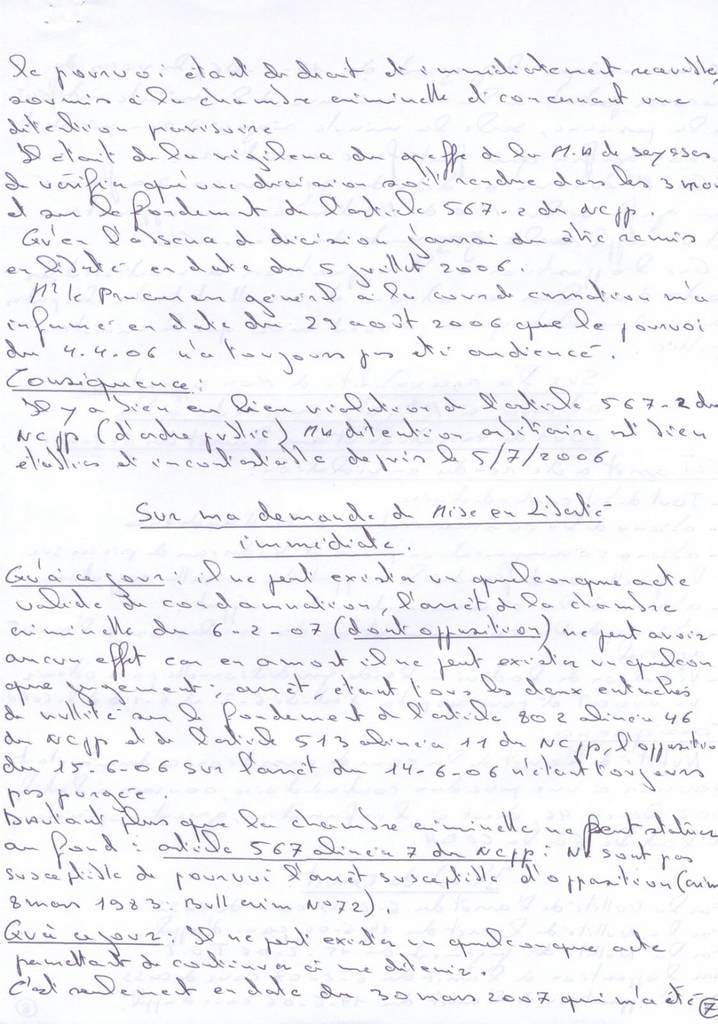 le pourvoi étant de droit et immédiatement recevable,
soumis à la chambre criminelle et concernant une
détention provisoire.
Il était de la vigilence du greffe de la M.A de Seysses
de vérifier qu'une décision soit rendue dans les 3 mois
et sur le fondement de l'article 567-2 du NCPP.
Qu'en l'absence de décision j'aurai du être remis
en liberté en date du 5 juillet 2006.
Mr le Procureur général à la cour de cassation m'a
informé en date du 29 août 2006 que le pourvoi
du 4.4.06 n'a toujours pas été audiencé.
Conséquence :
Il y a bien eu bien violation de l'article 567-2 du
NCPP (d'ordre public) Ma détention arbitraire est bien
établie et incontestable depuis le 5/7/2006
Sur ma demande de Mise en Liberté
immédiate.
Qu'à ce jour : il ne peut exister un quelconque acte
valide de condamnation, l'arrêt de la chambre
criminelle du 6-2-07 (dont opposition) ne peut avoir
aucun effet car en amont il ne peut exister un quelcon
que jugement ; arrêt, étant tous les deux entachés
de nullité sur le fondement de l'article 802 alinéa 46
du NCPP et de l'article 513 alinéa 11 du NCPP, l'opposition
du 15-6-06 sur l'arrêt du 14-6-06 n'étant toujours
pas purgée.
D'autant plus que la chambre criminelle ne peut statuer
au fond : article 567 alinéa 7 du NCPP : Ne sont pas
susceptible de pourvoi l'arrêt susceptible d'opposition (crim
8 mars 1983 : Bull crim N°72).
Qu'à ce jour : Il ne peut exister un quelconque acte
permettant de continuer à me détenir.
C'est seulement en date du 30 mars 2007 qui m'a été
7